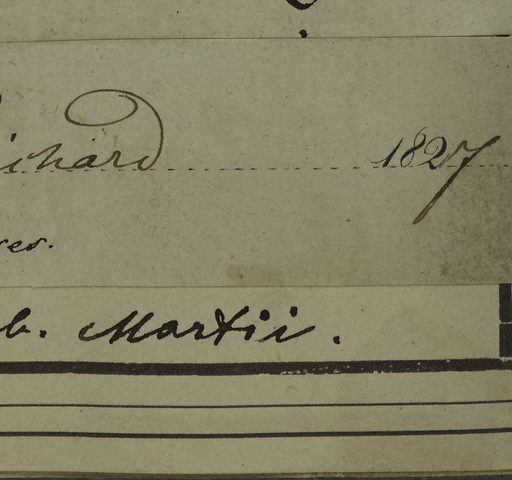 ichard 1827
res.
b. Martii.